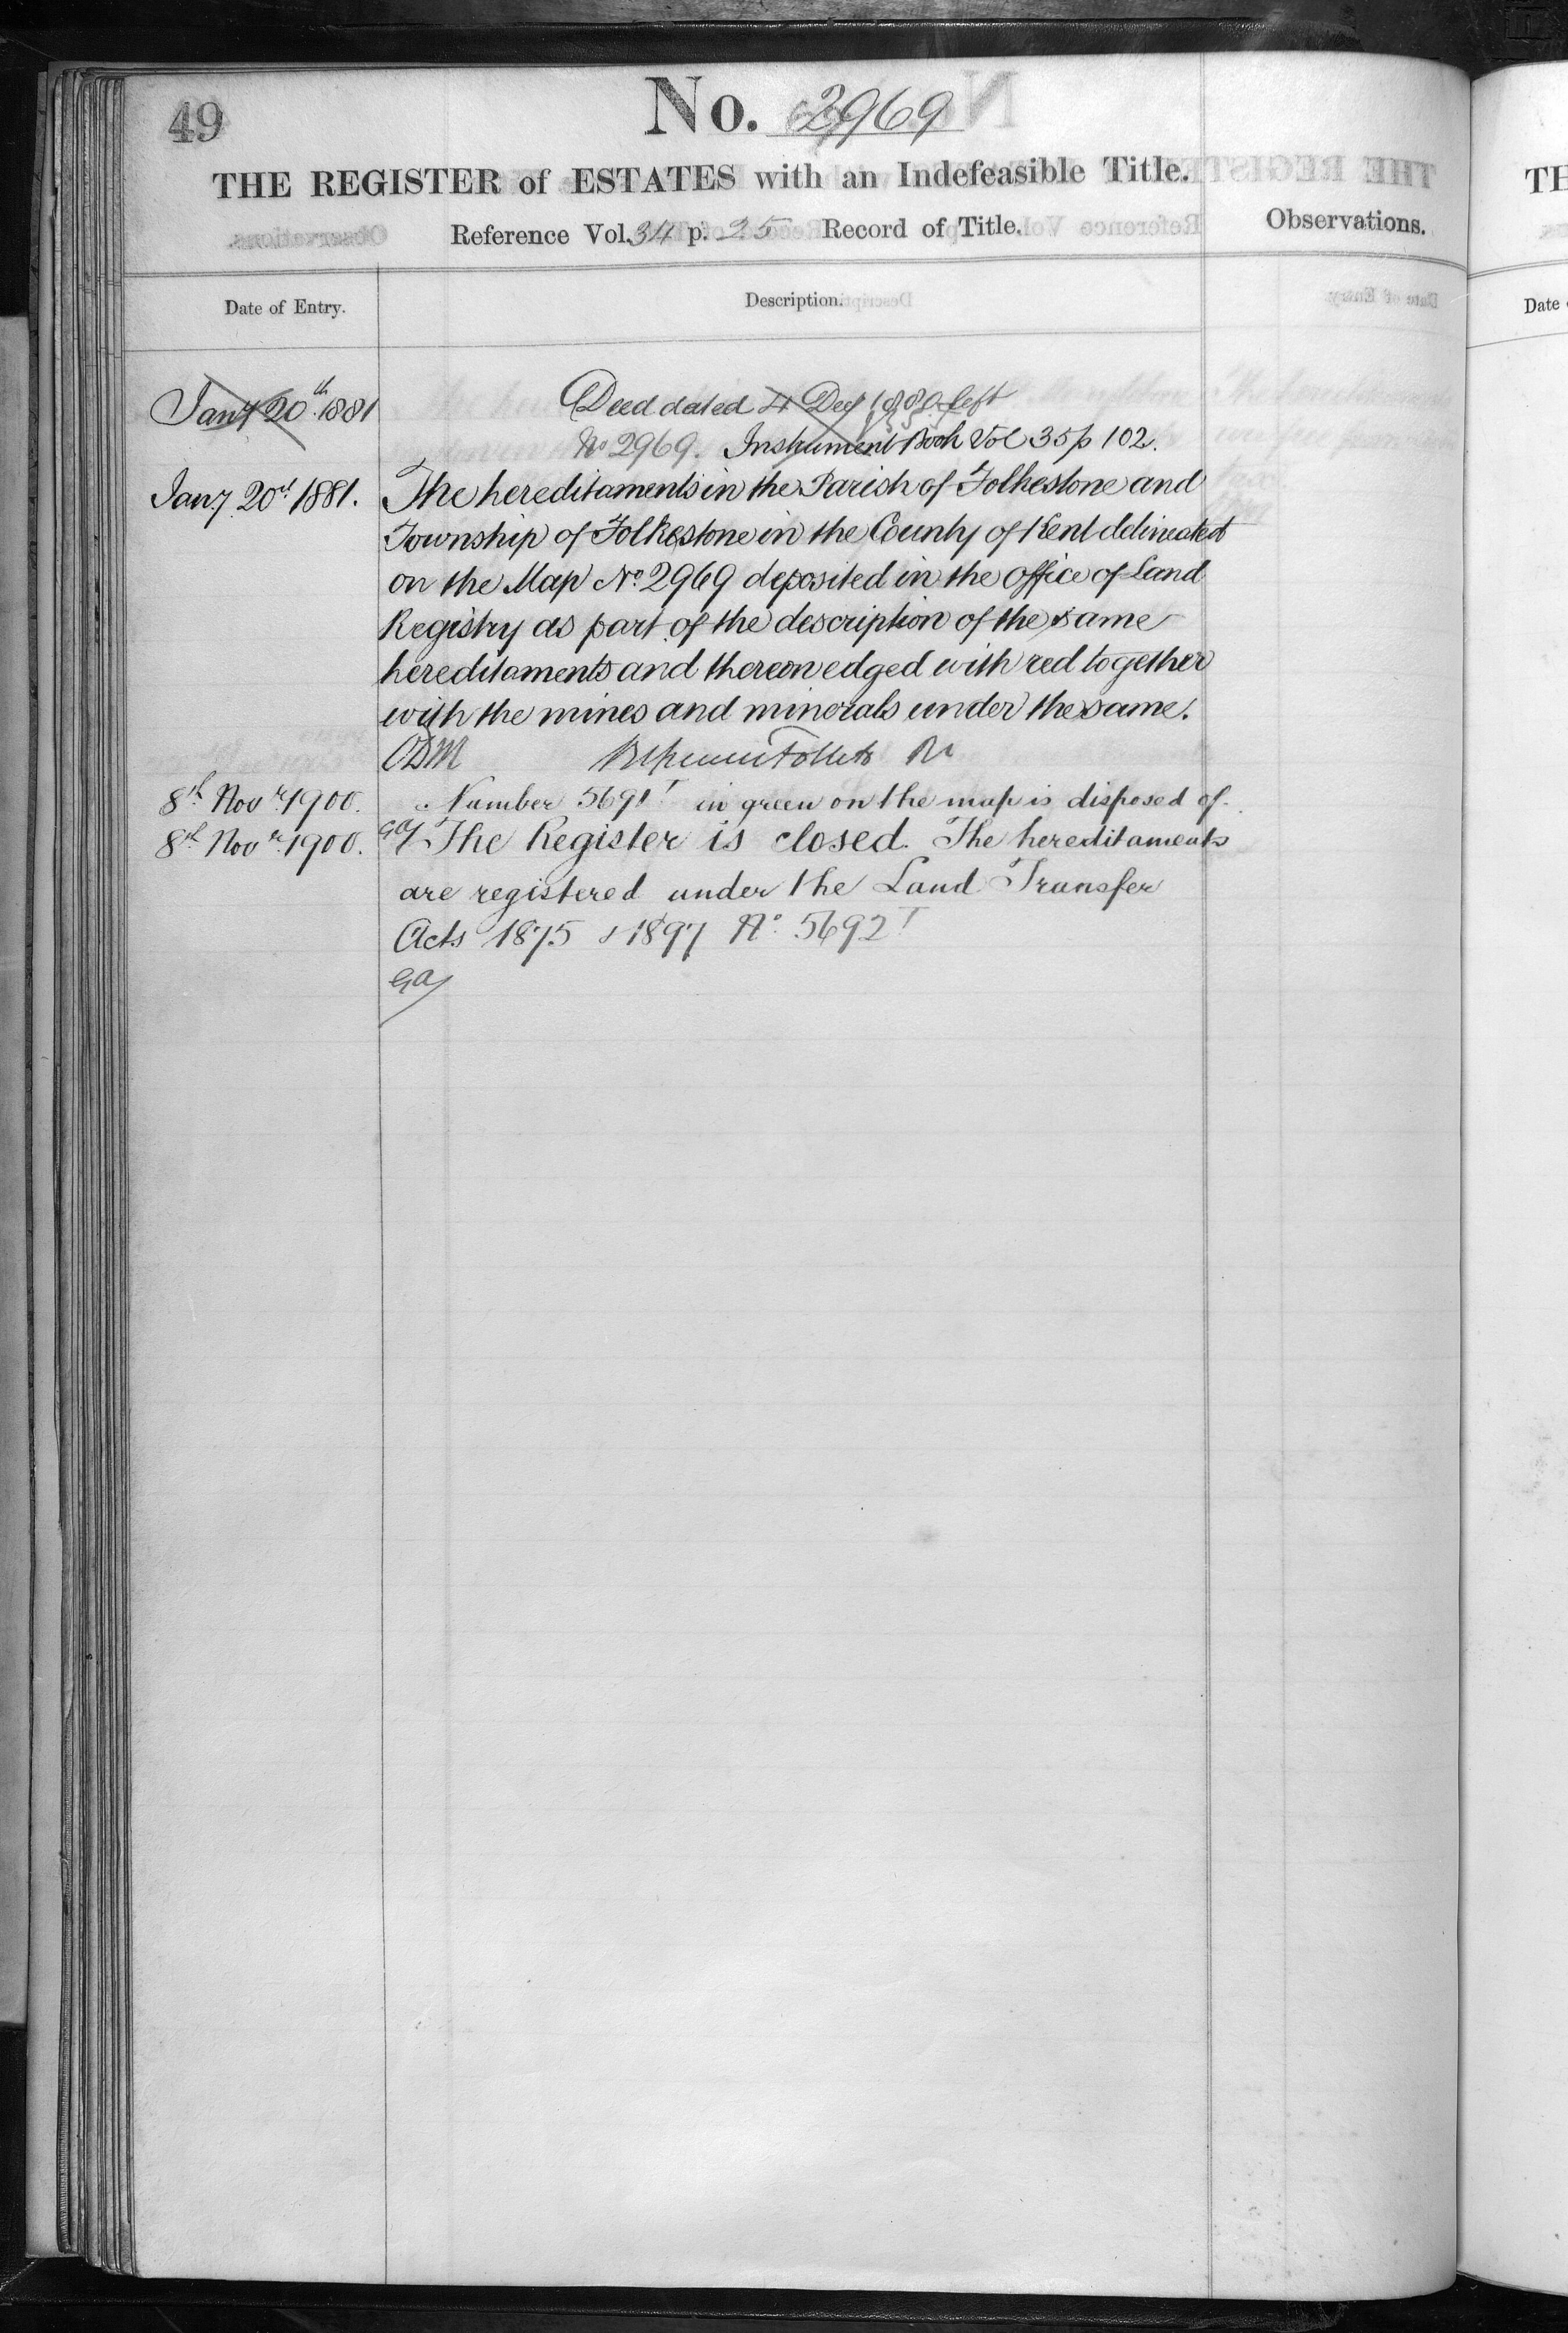 49
No. 2969
THE REGISTER of ESTATES with an Indefeasible Title.
Reference Vol. 34 p. 25 Record of Title.
Observations.
Date of Entry.
Description.
Jany 20th 1881
Deed dated 4 Decr 1880 left
No 2969. Instrument Book Vol 35 p 102.
Jany 20th 1881.
The hereditaments in the Parish of Folkestone and
Township of Folkestone in the County of Kent delineated
on the Map No. 2969 deposited in the Office of Land
Registry as part of the description of the same
hereditaments and thereon edged with red together
with the mines and minerals under the same.
Follett
8th Novr 1900.
Number 5691T in green on the map is disposed of.
8th Novr 1900.
The Register is closed. The hereditaments
are registered under the Land Transfer
Acts 1875 & 1897 No. 5692T
TH
Date